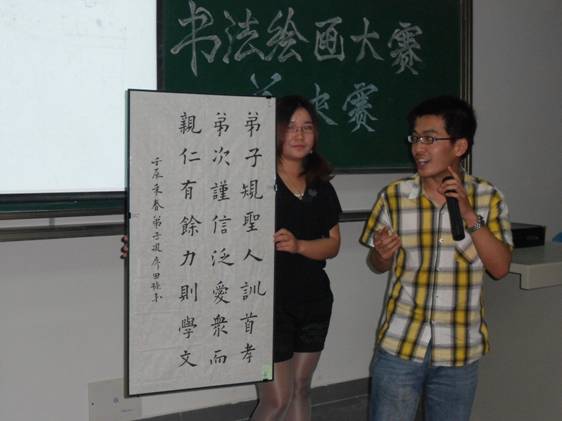 书法绘画大赛
决赛
弟子規聖人訓首孝
弟次謹信泛愛衆而
親仁有餘力則學文
壬辰季春弟子規